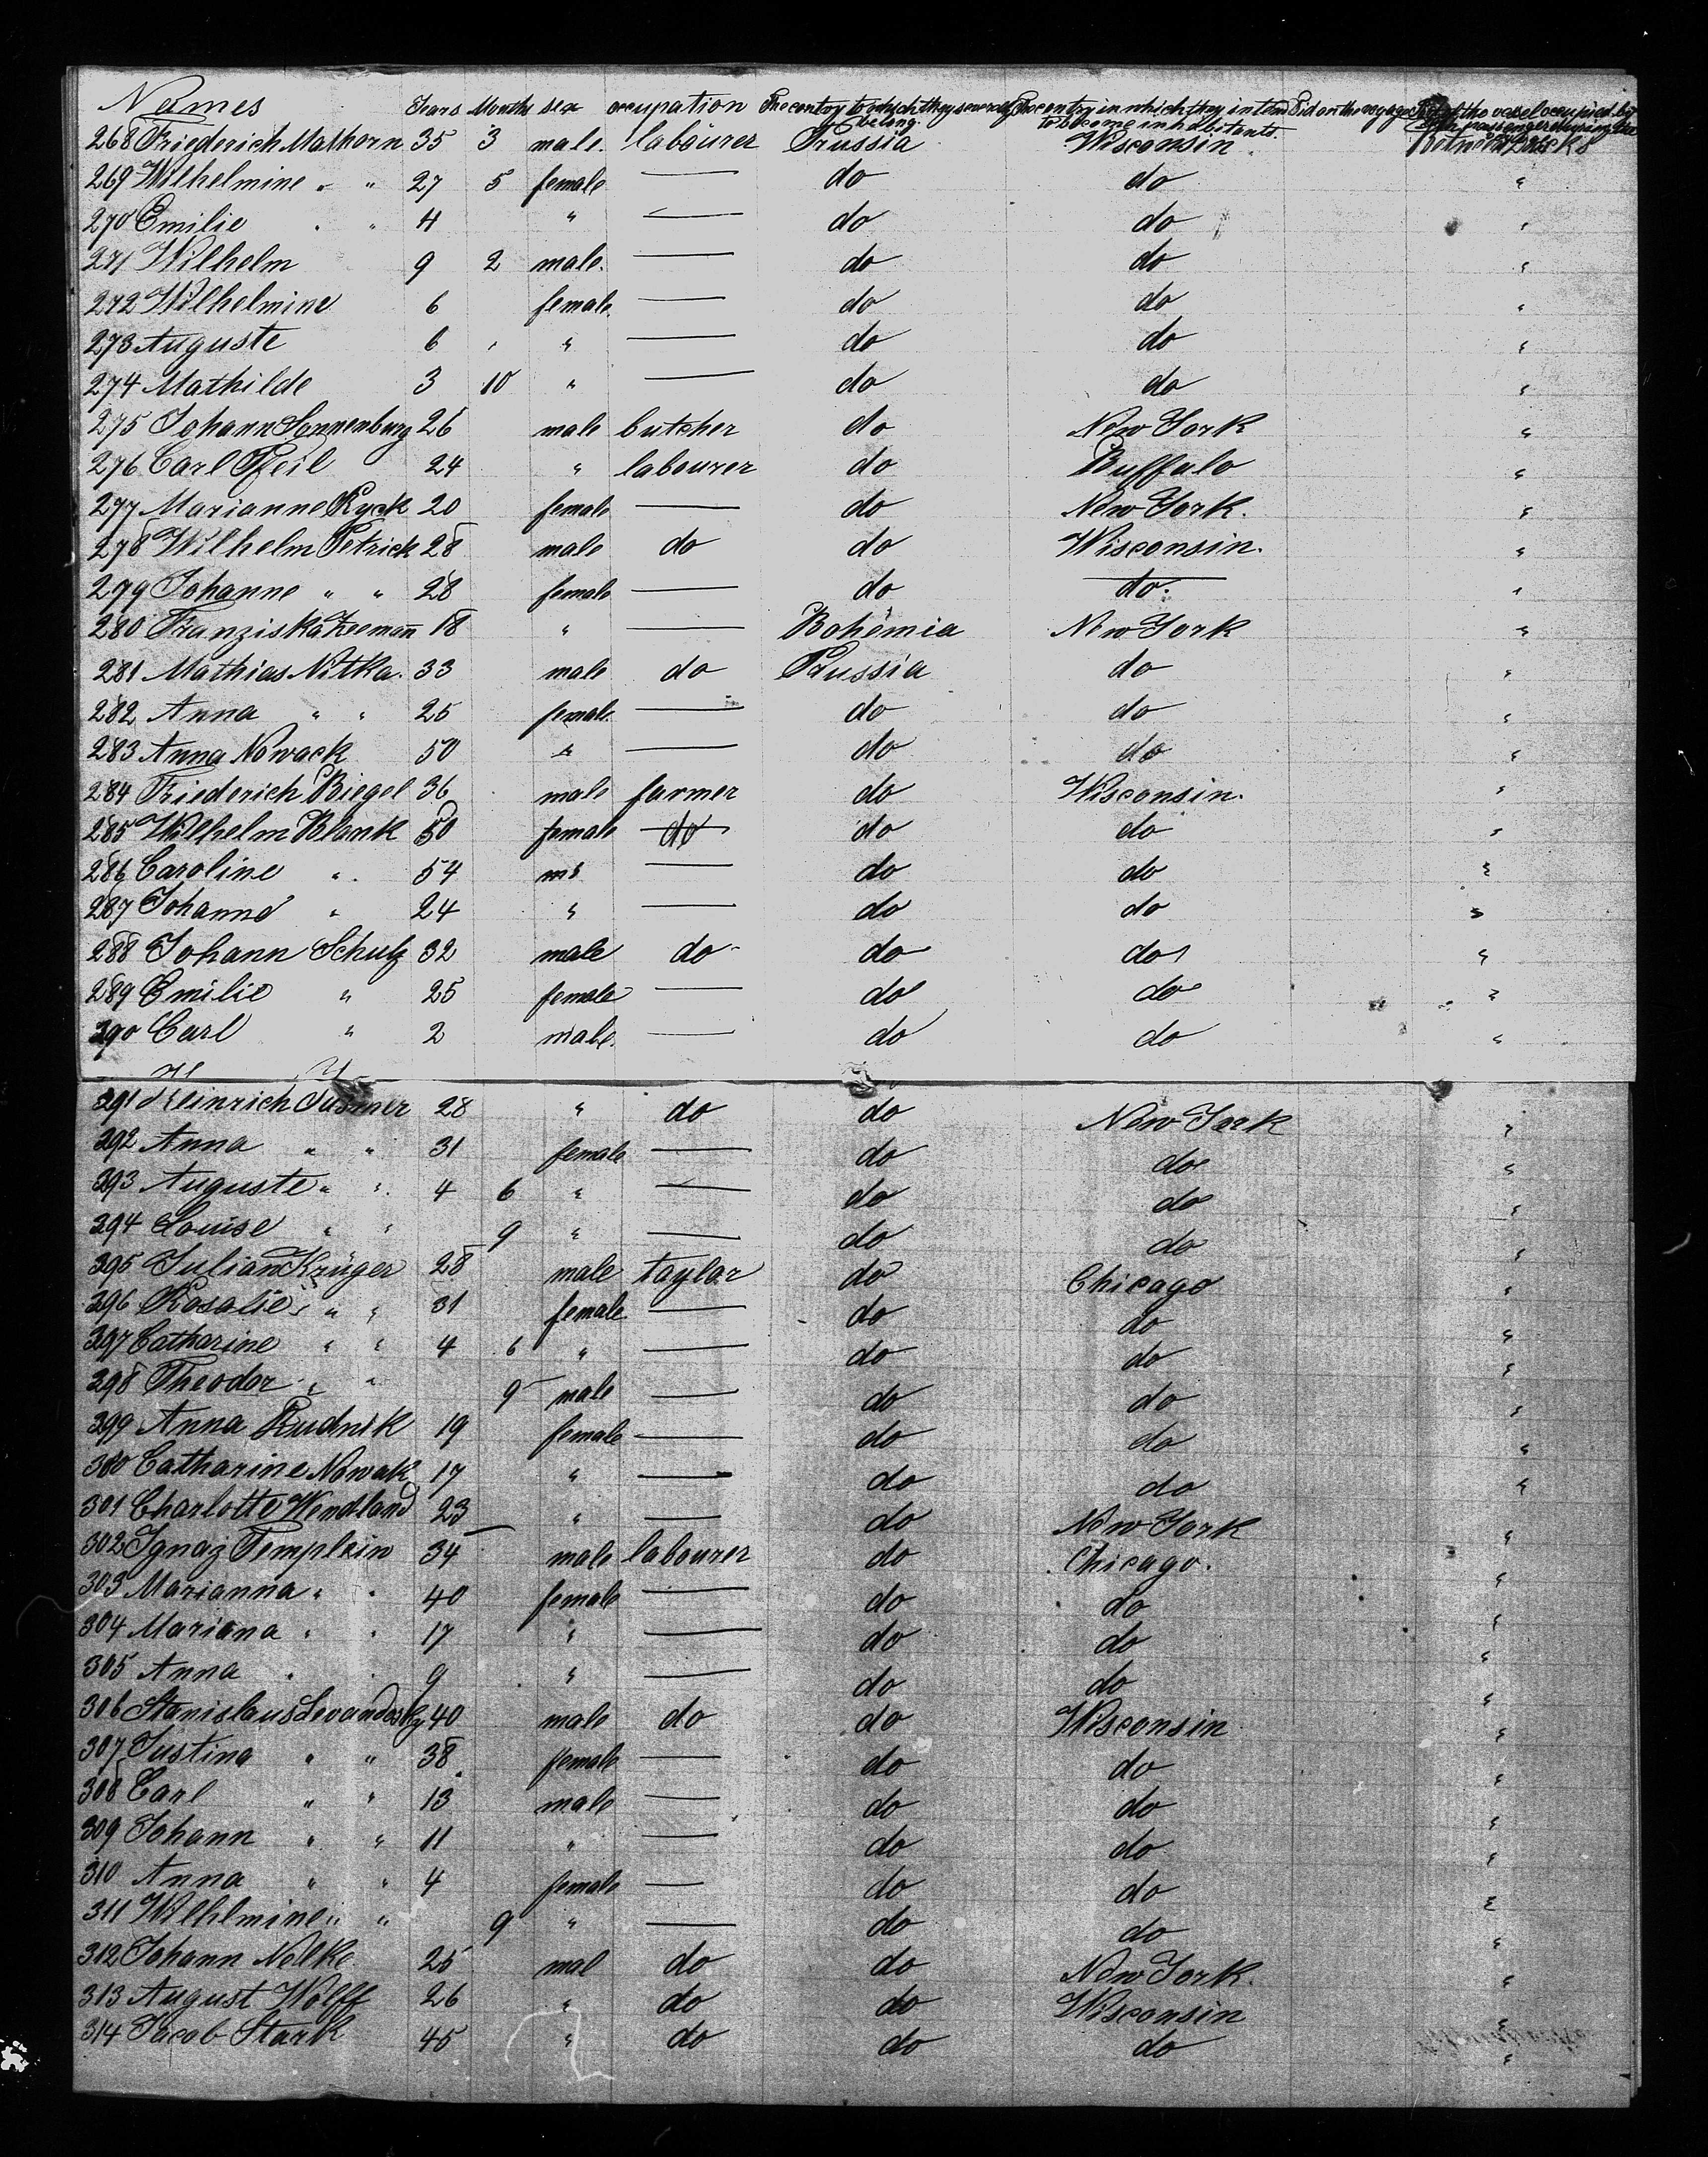 Names Years Months sex occupation The contry to which they severally belong The contry in which they intend to become inhabitants Died on the voyage Part of the vessel occupied by
268 Friederich Malhorn 35 3 male labourer Prussia Wisconsin between decks
269 Wilhelmine " " 27 5 female — do do "
270 Emilie " " 4 " — do do "
271 Wilhelm 9 2 male — do do "
272 Wilhelmine 6 female — do do "
273 Auguste 6 " — do do "
274 Mathilde 3 10 " — do do "
275 Johann Sonnenburg 26 male butcher do New York "
276 Carl Pfeil 24 " labourer do Buffalo "
277 Marianne Ryck 20 female — do New York. "
278 Wilhelm Petrick 28 male do do Wisconsin. "
279 Johanne " " 28 female — do do. "
280 Franziska Zeemann 18 " — Bohemia New York "
281 Mathias Nitka. 33 male do Prussia do "
282 Anna " " 25 female — do do "
283 Anna Nowack 50 " — do do "
284 Friederich Biegel 36 male farmer do Wisconsin. "
285 Wilhelm Blank 50 female do do do "
286 Caroline " 54 — do do "
287 Johanne " 24 " — do do "
288 Johann Schulz 32 male do do do "
289 Emilie " 25 female — do do "
290 Carl " 2 male — do do "
291 Heinrich 28 " do do New York "
292 Anna " " 31 female — do do "
293 Auguste " " 4 6 " — do do "
294 Louise " " 9 " — do do "
295 Julian Krüger 28 male taylor do Chicago "
296 Rosalie " " 31 female — do do "
297 Catharine " " 4 6 " — do do "
298 Theodor " " 9 male — do do "
299 Anna Rudnik 19 female — do do "
300 Catharine Nowak 17 " — do do "
301 Charlotte Wendland 23 " — do New York "
302 Ignaz Templein 34 male labourer do Chicago. "
303 Marianna " " 40 female — do do "
304 Mariana " " 17 " — do do "
305 Anna " " 9 " — do do "
306 Stanislaus Levandosky 40 male do do Wisconsin "
307 Justina " " 38 female — do do "
308 Carl " " 13 male — do do "
309 Johann " " 11 " — do do "
310 Anna " " 4 female — do do "
311 Wilhlmine " " 9 " — do do "
312 Johann Nolke 25 mal do do New York. "
313 August Wolff 26 " do do Wisconsin "
314 Jacob Stark 45 " do do do "